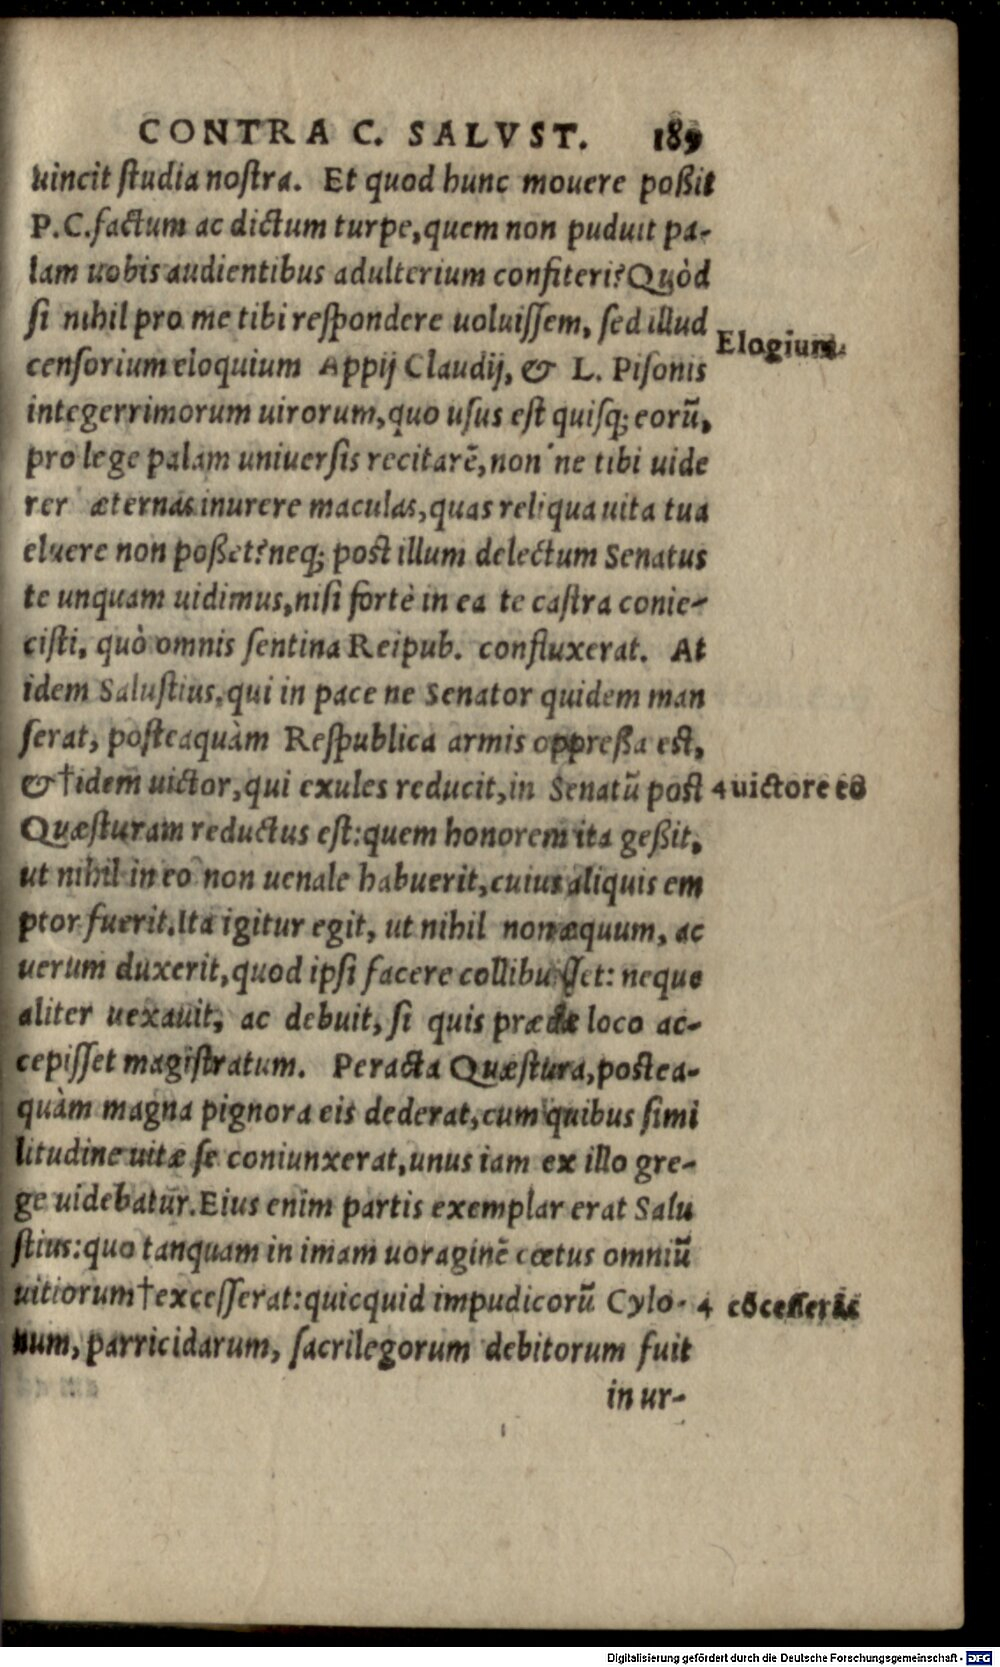 CONTRA C. SALVST. 189
uincit studia nostra. Et quod hunc mouere poßit
P.C.factum ac dictum turpe,quem non puduit pa-
lam uobis audientibus adulterium confiteri? Quòd
si nihil pro me tibi respondere uoluissem, sed illud
Elogium.
censorium eloquium Appij Claudij, & L. Pisonis
integerrimorum uirorum,quo usus est quisq; eorũ,
pro lege palam uniuersis recitarē,non'ne tibi uide
rer æternas inurere maculas,quas reliqua uita tua
eluere non poßet?neq; post illum delectum Senatus
te unquam uidimus,nisi fortè in ea te castra conie-
cisti, quò omnis sentina Reipub. confluxerat. At
idem Salustius,qui in pace ne Senator quidem man
serat, posteaquàm Respublica armis oppreßa est,
& †idem uictor,qui exules reducit,in Senatũ post
4 uictore eō
Quæsturam reductus est:quem honorem ita geßit,
ut nihil in eo non uenale habuerit,cuius aliquis em
ptor fuerit.Ita igitur egit, ut nihil non æquum, ac
uerum duxerit,quod ipsi facere collibuisset: neque
aliter uexauit, ac debuit, si quis prædæ loco ac-
cepisset magistratum. Peracta Quæstura,postea-
quàm magna pignora eis dederat,cum quibus simi
litudine uitæ se coniunxerat,unus iam ex illo gre-
ge uidebatur.Eius enim partis exemplar erat Salu
stius:quo tanquam in imam uoraginē cœtus omniũ
uitiorum†excesserat:quicquid impudicorũ Cylo-
4 cōcesserit
num, parricidarum, sacrilegorum debitorum fuit
in ur-
Digitalisierung gefördert durch die Deutsche Forschungsgemeinschaft - DFG